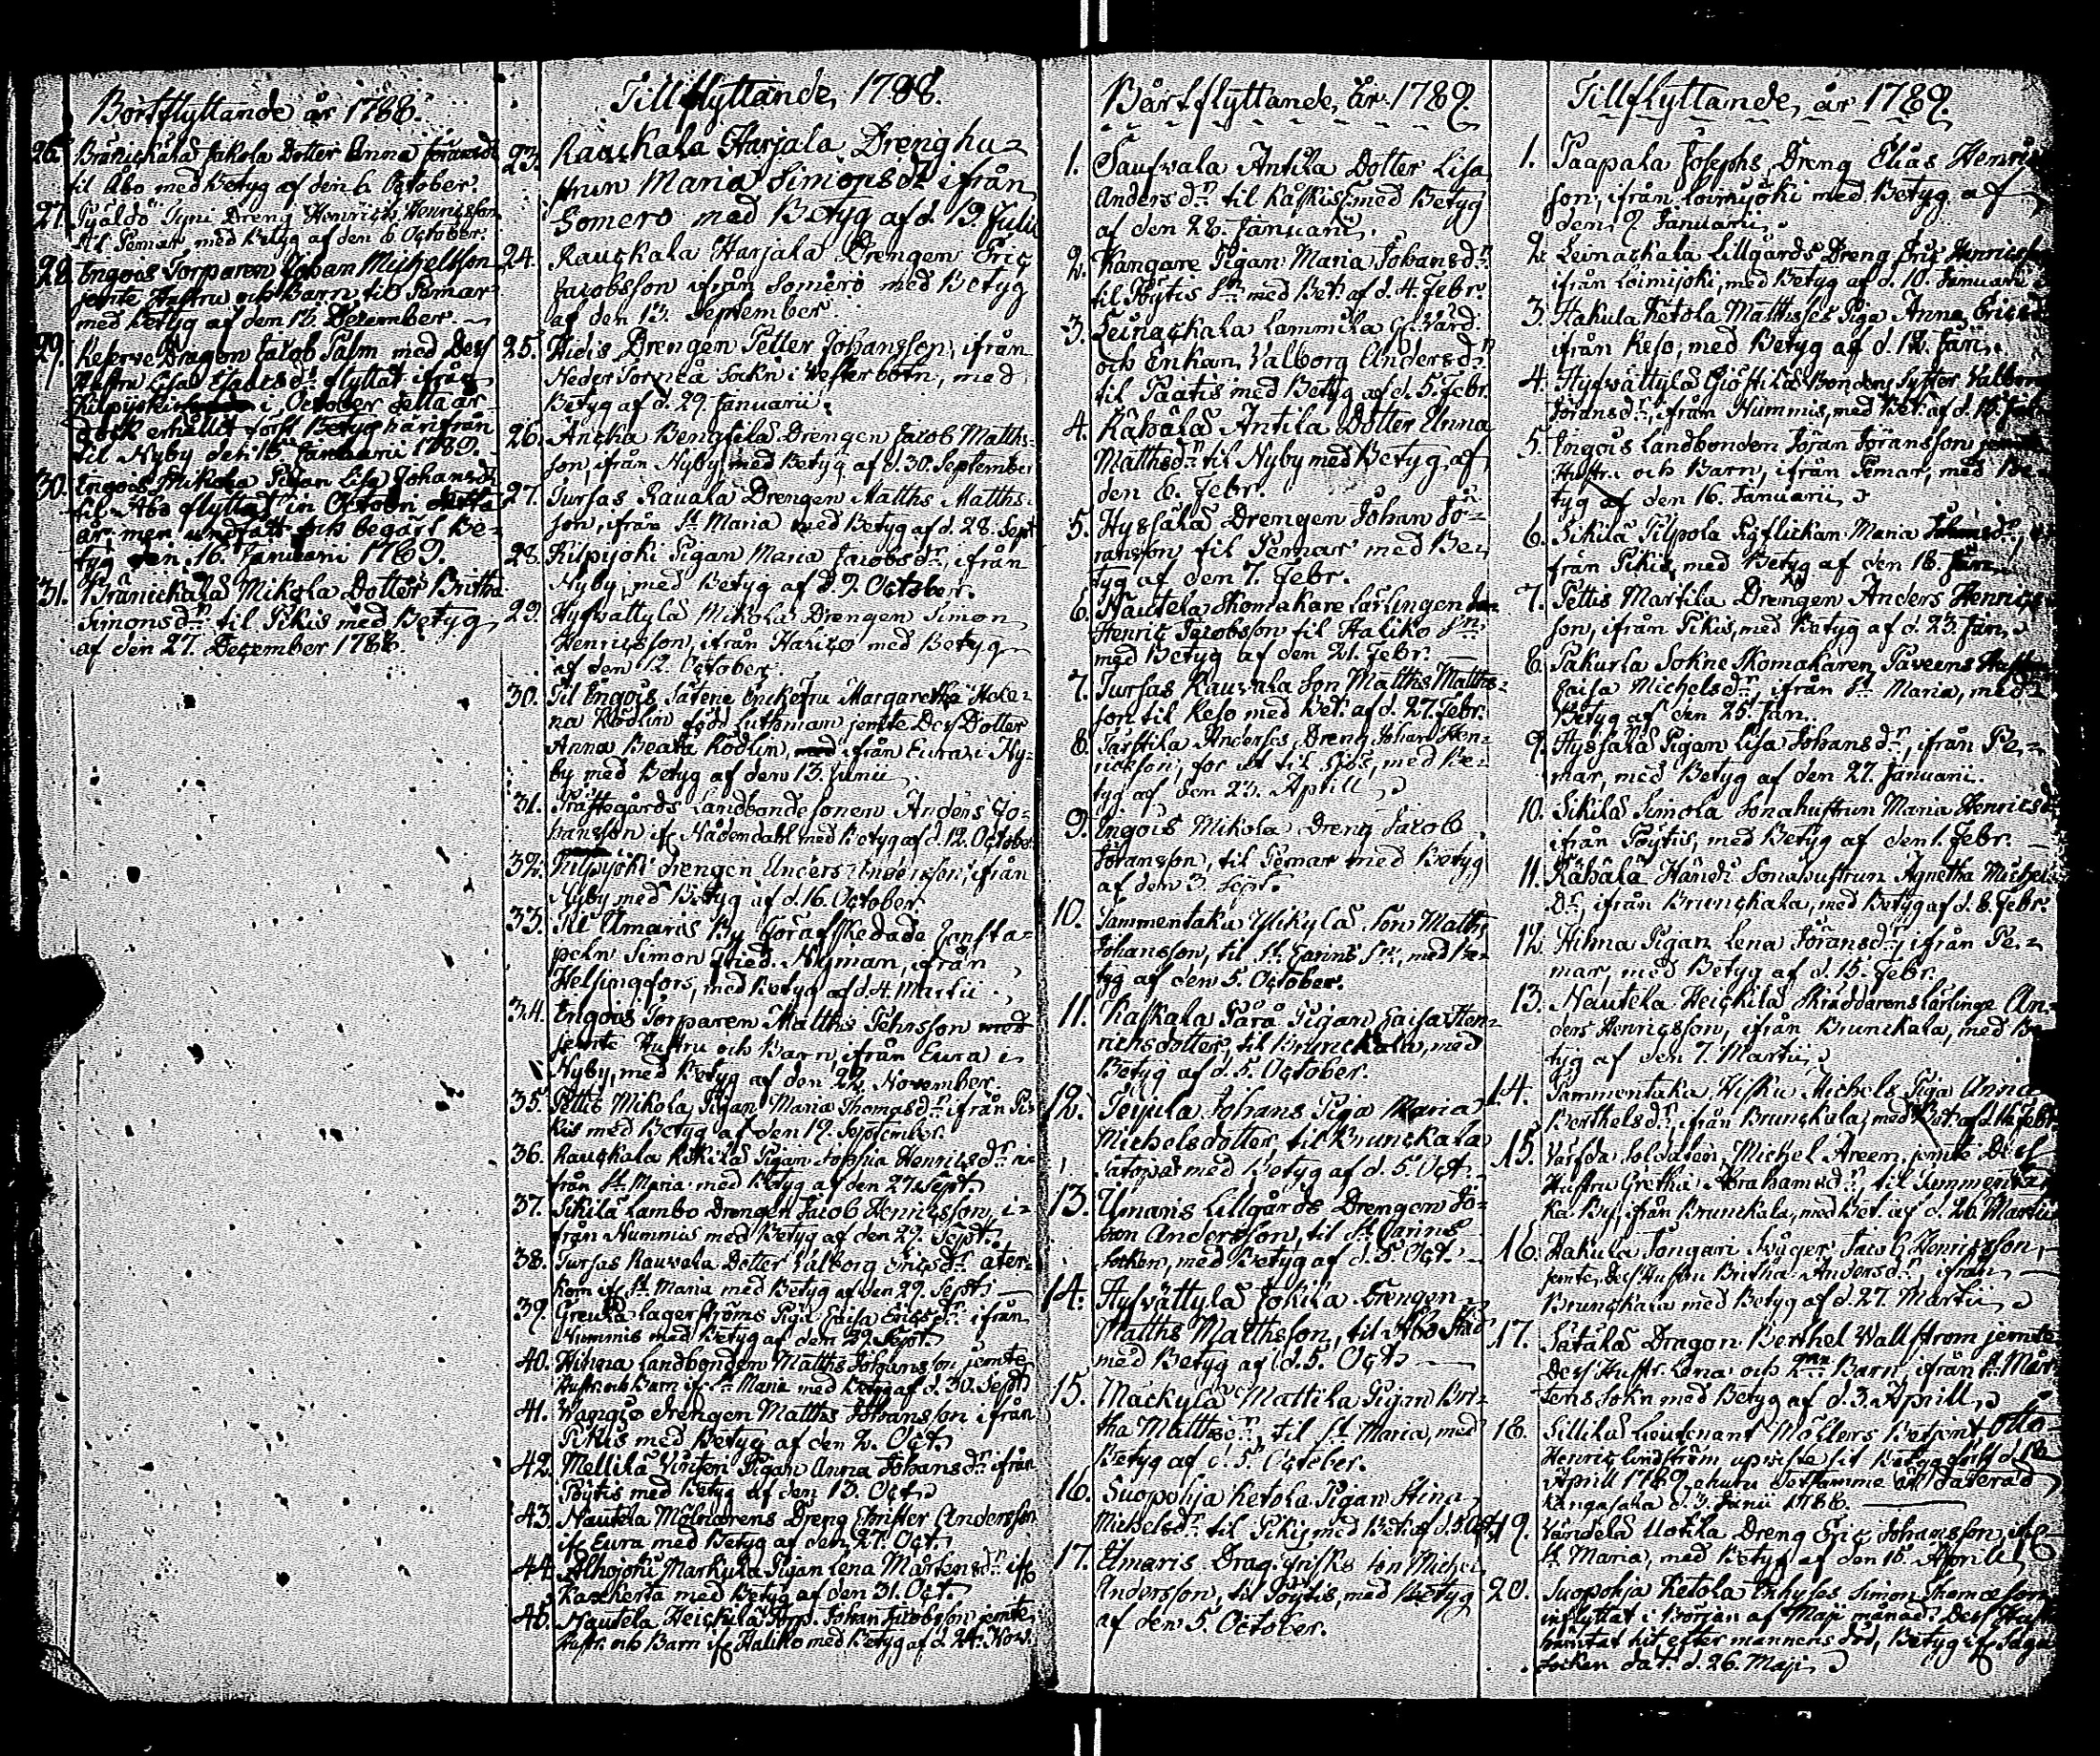 Bortflyttande år 1788.
26. Bränickala Jakola Dotter Anna Göransdr
til Åbo med Betyg af den 6. October.
27. Tyni Dreng Henrich Henricsson
til Pemar med Betyg af den 6. October.
28. Engois Torparen Johan Michelsson
jemte Hustru och Barn til Pemar
med Betyg af den 13. December
29. Reserve Dragon Jacob Palm med Dess
Hustru Lisa Esaiæsdr flyttat ifrån
Kilpijoki i October detta år
dock erhållit först Betyg härifrån
til Nyby den 15 Januarii 1789.
30. Engois Mikola Pigan Lisa Johansdr
til Åbo flyttat in Octobri detta
år men undfått och begärt Be-
tyg den 16. Januarii 1789.
31. Bränickala Mikola Dotter Britha
Simonsdr til Pikis med Betyg
af den 27. December 1788.
Tillflyttande, 1788.
23. Rauckala Harjala Dreng hu-
strun Maria Simonsdr ifrån
Somero med Betyg af d. 19. Julii
24. Rauckala Harjala Drengen Eric
Jacobsson ifrån Somero med Betyg
af den 13. September.
25. Drengen Petter Johansson, ifrån
Neder Torneå Sockn i Westerbotn, med
Betyg af d. 29. Januarii.
26. Ancka Bengtila Drengen Jacob Matths-
son, ifrån Nyby med Betyg af d. 30. September
27. Tursas Rauvala Drengen Matths Matths-
son, ifrån St Maria med Betyg af d. 28. Sept
28. Kilpijoki Pigan Maria Jacobsdr, ifrån
Nyby, med Betyg af d. 9. October.
29. Hyfvättylä Mikola Drengen Simon
Henricsson, ifrån Halico med Betyg
af den 12. October
30. Til Engois Sätene Enkefru Margaretha Hele-
na Rödlin född Luthman jemte Dess Dotter
Anna Beata Rödlin, ifrån Eura i Ny-
by med Betyg af den 13. Junii
31. Präftegårds Landbonde sonen Anders Jo-
hansson if Nådendahl med Betyg af d. 12. October
32. Kilpijoki drengen Anders Andersson, ifrån
Nyby med Betyg af d. 16. October
33. Til Umaris By för afskedade
Simon Fried. Nyman, ifrån
Helsingfors, med Betyg af d. 4. Martii
34. Engois Torparen Matths Pehrsson
jemte Hustru och Barn, ifrån Eura i
Nyby, med Betyg af den 22. November.
35. Pettis Mikola Pigan Maria Thomasdr ifrån Pi-
kis med Betyg af den 19. September.
36. Rauckala Pigan Sophia Henricsdr i-
från St Maria med Betyg af den 27. Sept.
37. Sikilä Lambo Drengen Jacob Henricsson, i-
från Nummis med Betyg af den 29. Sept.
38. Tursas Rauvala Dotter Walborg Ericsdr åter-
kom if St Maria med Betyg af den 29. Sept
39. Greula Lagerströms Piga Caisa Ericsdr ifrån
Nummis med Betyg af den 29. Sept.
40. Hinna Landbonden Matths Johansson jemte
Hustr. och Barn if St Maria med Betyg af d. 30. Sept
41. Wangio drengen Matths Johansson ifrån
Pikis med Betyg af den 2. Oct.
42. Mellilä Vinten Pigan Anna Johansdr ifrån
Pöytis med Betyg af den 13. Oct.
43. Nautela Mölnarens Dreng Christer Andersson
if Eura med Betyg af den 27. Oct.
44. Alhojoki Markula Pigan Lena Mårtensdr if
Kackerta med Betyg af den 31. Oct.
45. Nautela Heickilä Torp. Johan Jacobsson jemte
Hustr. och Barn if Haliko med Betyg af d. 24. Nov.
Bårtflyttande, år 1789.
1. Saufvala Antila Dotter Lisa
Andersdr til Kaskis med Betyg
af den 28. Januarii.
2. Kangare Pigan Maria Johansdr
til Pöytis Sn med Bet. af d. 4. Febr.
3. Leinackala Lammila
och Enkan Valborg Andersdr
til Paatis med Betyg af d. 5. Febr.
4. Kähälä Antila Dotter Anna
Matthsdr til Nyby med Betyg af
den 6. Febr.
5. Hyssälä Drengen Johan Jö-
ransson til Pemar med Be-
tyg af den 7. Febr.
6. Nautela Skomakare Lärlingen
Henric Jacobsson til Haliko Sn
med Betyg af den 21. Febr.
7. Tursas Rauvala Son Matths Matths-
son til Reso med Bet. af d. 27. Febr.
8. Anderses Dreng Johan Hen-
ricksson, for ut til Sjös, med Be-
tyg af den 23. Aprill
9. Engois Mikola Dreng Jacob
Jöransson, til Pemar med Betyg
af den 3. Sept.
10. Tammentaka Mikylä Son Matths
Johansson, til St. Carins Sn, med Be-
tyg af den 5. October.
11. Kaskala Pärä Pigan Caisa Hen-
ricksdotter, til Brunckala, med
Betyg af d. 5. October.
12. Johans Piga Maria
Michelsdotter, til Brunckala
med Betyg af d. 5. Oct
13. Umaris Lillgårds Drengen Jö-
ran Andersson, til St Carins
Socken, med Betyg af d. 5. Oct.
14. Hyfvättylä Jokila Drengen
Matths Matthsson, til Åbo Stad
med Betyg af d. 5. Oct
15. Mäckylä Mattila Pigan Bri-
tha Matthsdr, til St Maria, med
Betyg af d. 5. October.
16. Suopohja Ketola Pigan Stina
Michelsdr til Pikis med Bet. af d. 5. Oct.
17. Umaris Drag. son Michel
Andersson, til Pöytis, med Betyg
af den 5. October.
Tillflyttande, år 1789.
1. Paapala Josephs Dreng Elias Henrics-
son, ifrån Loimijoki med Betyg af
den 9. Januarii.
2. Leinackala Lillgårds Dreng Eric Henricsson
ifrån Loimijoki, med Betyg af d. 10. Januarii
3. Hakula Ketola Matthsses Piga Anna Ericsdr
ifrån Reso, med Betyg af d. 12. Jan.
4. Hyfvättylä Bondens Syster Valborg
Jöransdr, ifrån Nummis, med Bet. af d. 15. Jan.
5. Engois Landbonden Jöran Jöransson
Hustru och Barn, ifrån Pemar, med Be-
tyg af den 16. Januarii
6. Sikilä Pilpola Pigflickan Maria
från Pikis, med Betyg af den 18. Jan.
7. Pettis Martila Drengen Anders Henrics-
son, ifrån Pikis, med Betyg af d. 23. Jan.
8. Pakurla Sokne Skomakaren Paveens Hustru
Caisa Michelsdr, ifrån St Maria, med
Betyg af den 25. Jan.
9. Hyssälä Pigan Lisa Johansdr, ifrån Pe-
mar, med Betyg af den 27. Januarii.
10. Sikilä Simola Sonahustrun Maria Henricsdr
ifrån Pöytis, med Betyg af den 1. Febr.
11. Kähälä Sonahustrun Agnetha Michels-
dr, ifrån Brunckala, med Betyg af d. 8. Febr.
12. Hilma Pigan Lena Jöransdr, ifrån Pe-
mar, med Betyg af d. 15. Febr.
13. Nautela Heickilä Skräddarens Lärlinge An-
ders Henricsson, ifrån Brunckala, med Be-
tyg af den 7. Martii
14. Tammentaka Michels Piga Anna
Berthelsdr, ifrån Brunckala, med Bet. af d. 14. Febr.
15. Soldaten Michel Areen, jemte Dess
Hustru Gretha Abrahamsdr, til Tammenta-
ka By, ifrån Brunckala, med Bet. af d. 26. Martii
16. Hakula Tongari Svåger Jacob Henricsson,
jemte Dess Hustru Britha Andersdr, ifrån
Brunckala med Betyg af d. 27. Martii
17. Sätälä Dragon Berthel Wallström jemte
Dess Hustr. Lena och Barn, ifrån St Mår-
tens Sokn med Betyg af d. 3. Aprill
18. Lieutenant Möllers Betjent Otto
Henric Lindström upviste sit Betyg först d. 15
Aprill 1789, ehuru detsamme var daterad
Kangasala d. 3. Junii 1788.
19. Vändelä Uotila Dreng Eric Johansson, if
St Maria, med Betyg af den 15. Aprill
20. Suopohja Ketola Inhyses Simon
inflyttat i början af Maji månad. Dess Hustr
hämtat hit efter mannens död, Betyg if Sagu
Socken dat. d. 26. Maji